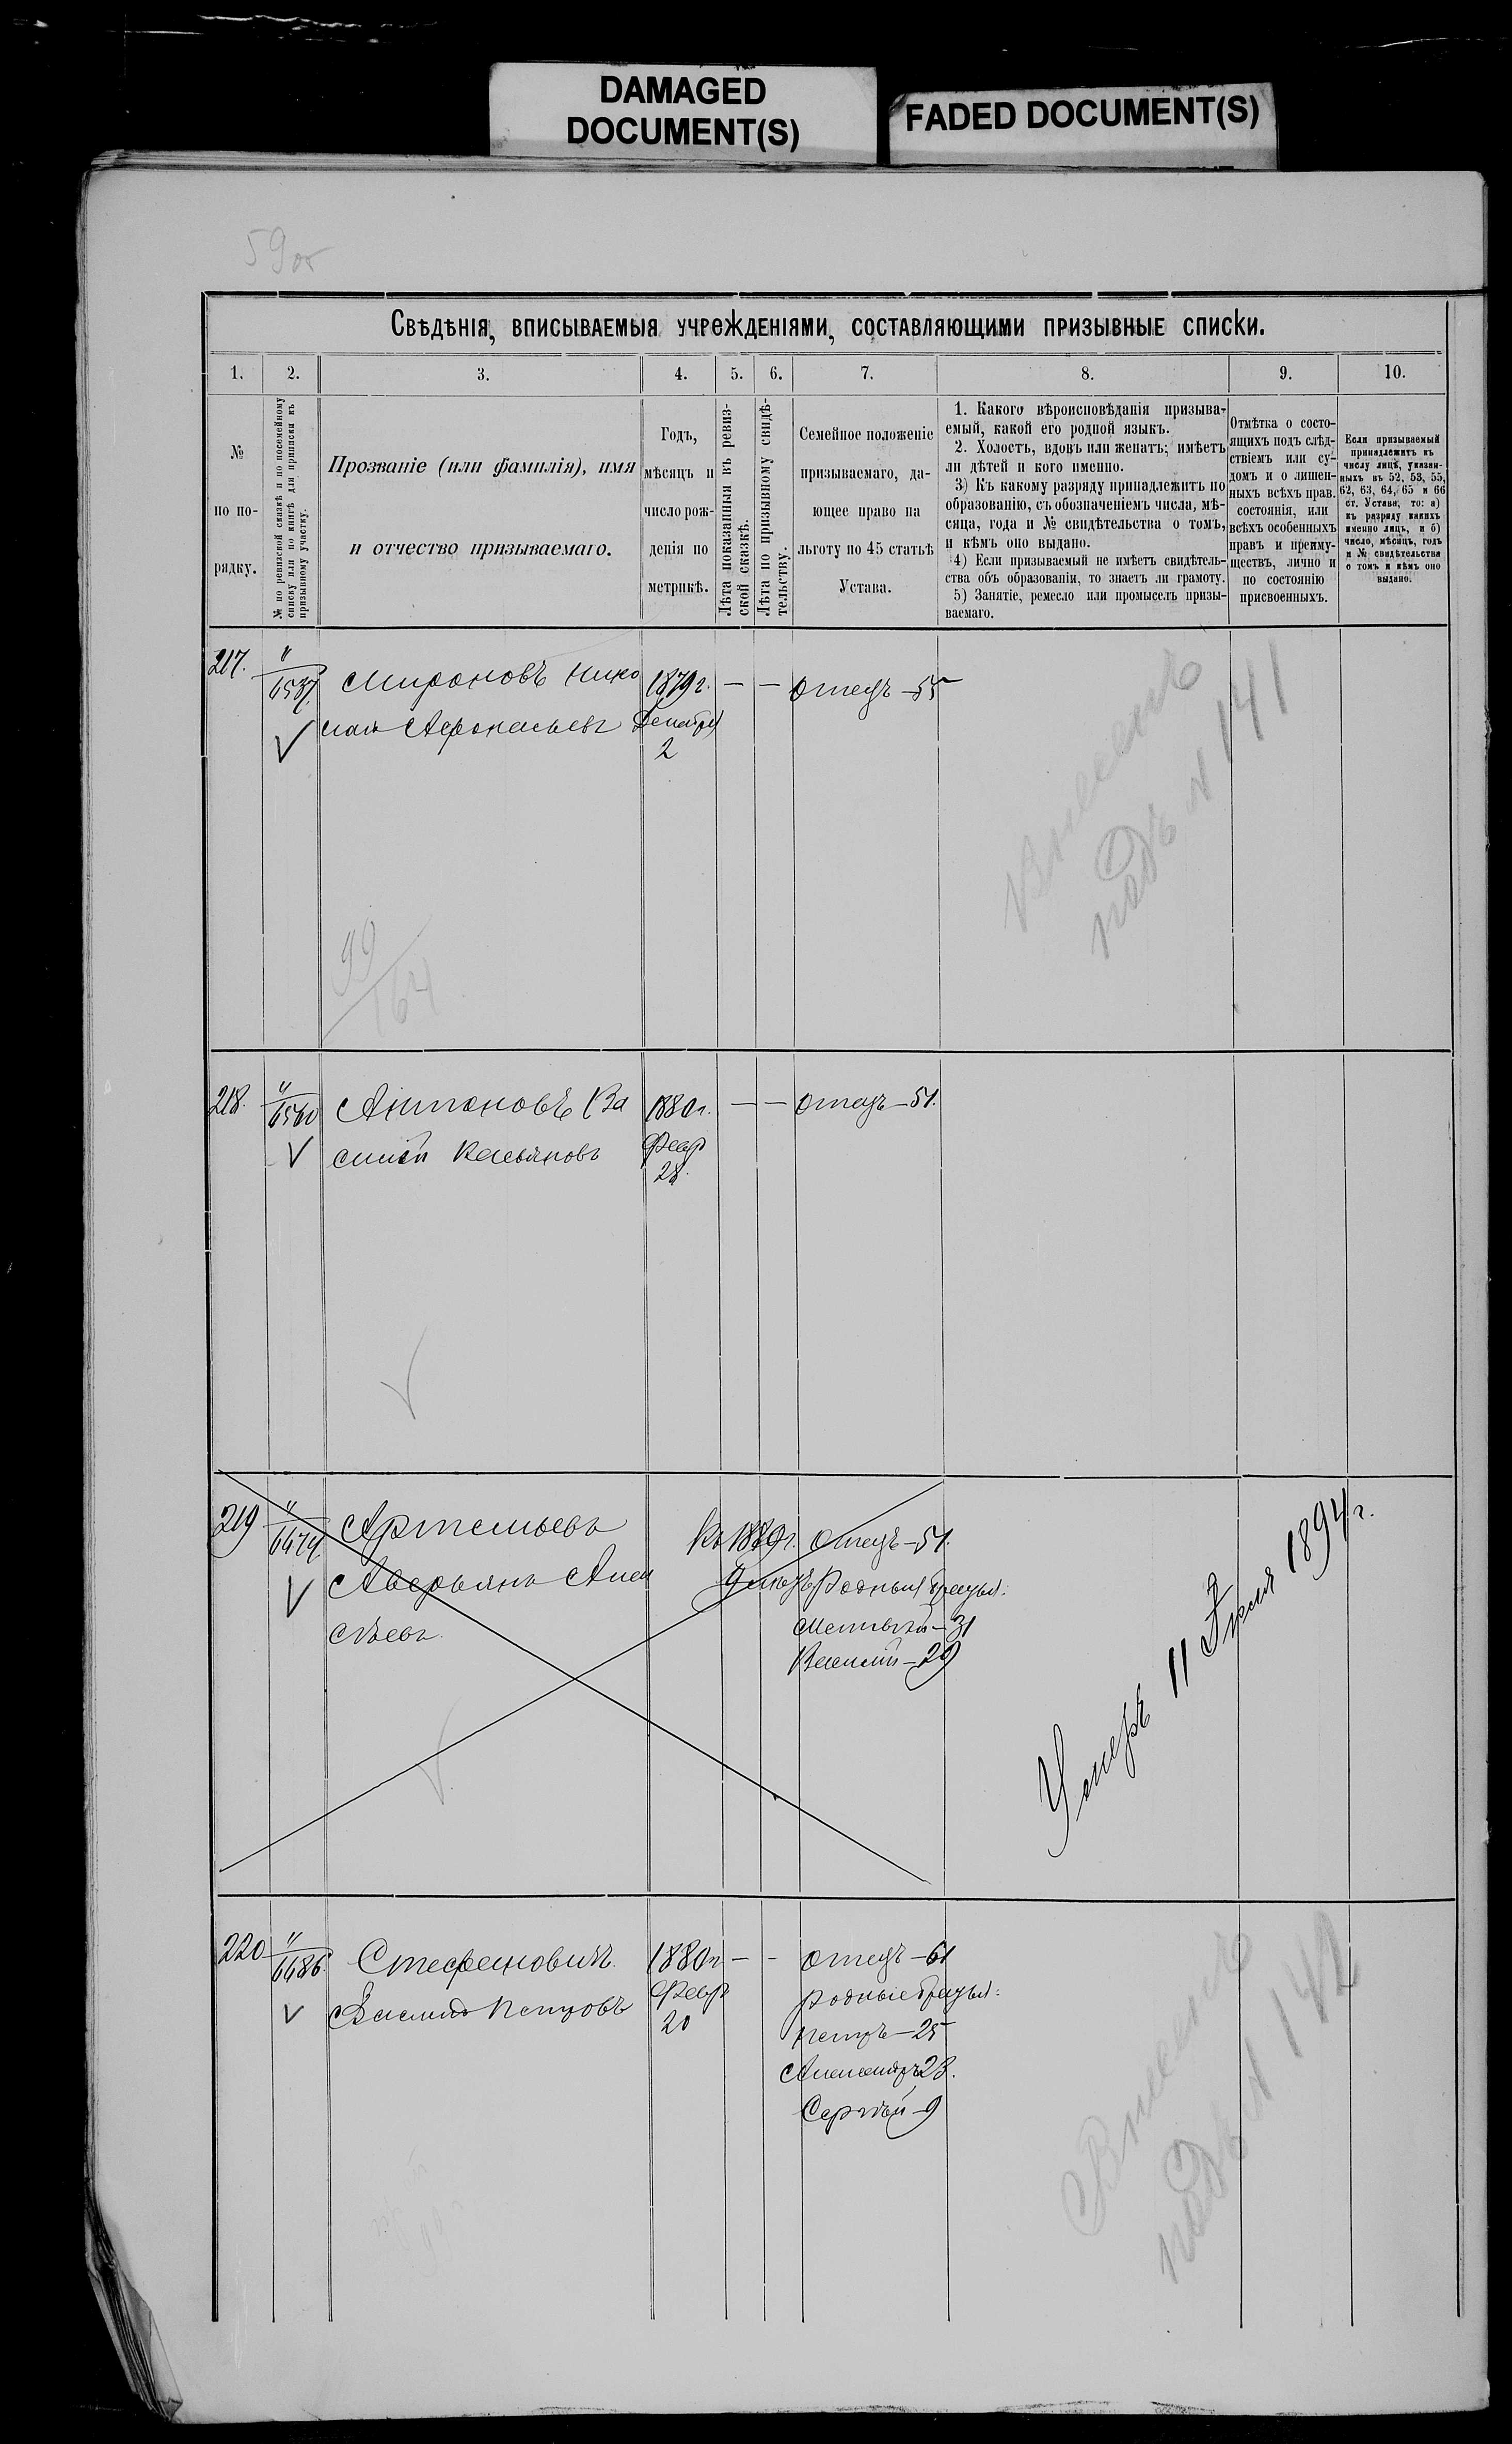 DAMAGED
DOCUMENT(S)
FADED DOCUMENT(S)
59об
Свѣдѣнія, вписываемыя учрежденіями, составляющими призывные списки.
1.
2.
3.
4.
5.
6.
7.
8.
9.
10.
№
по по-
рядку.
№ по ревизской сказкѣ и по посемейному
списку или по книгѣ для приписки къ
призывному участку.
Прозваніе (или фамилія), имя
и отчество призываемаго.
Годъ,
мѣсяцъ и
число рож-
денія по
метрикѣ.
Лѣта показанныя въ ревиз-
ской сказкѣ.
Лѣта по призывному свидѣ-
тельству.
Семейное положеніе
призываемаго, да-
ющее право на
льготу по 45 статьѣ
Устава.
1. Какого вѣроисповѣданія призыва-
емый, какой его родной языкъ.
2. Холостъ, вдовъ или женатъ; имѣетъ
ли дѣтей и кого именно.
3) Къ какому разряду принадлежитъ по
образованію, съ обозначеніемъ числа, мѣ-
сяца, года и № свидѣтельства о томъ,
и кѣмъ оно выдано.
4) Если призываемый не имѣетъ свидѣтель-
ства объ образованіи, то знаетъ ли грамоту.
5) Занятіе, ремесло или промыселъ призы-
ваемаго.
Отмѣтка о состо-
ящихъ подъ слѣд-
ствіемъ или су-
домъ и о лишен-
ныхъ всѣхъ прав.
состоянія, или
всѣхъ особенныхъ
правъ и преиму-
ществъ, лично и
по состоянію
присвоенныхъ.
Если призываемый
принадлежитъ къ
числу лицъ, указан-
ныхъ въ 52, 53, 55,
62, 63, 64, 65 и 66
ст. Устава, то: а)
къ разряду какихъ
именно лицъ, и б)
число, мѣсяцъ, годъ
и № свидѣтельства
о томъ и кѣмъ оно
выдано.
217. " Мироновъ Нико 1879 г. — — отецъ — 55
6537 лай Афонасьевъ Декабря
2
Внесенъ
подъ № 141
99
164
218. " Антоновъ Ва 1880 г. — — отецъ — 51.
6560 силій Касьяновъ Февр
28.
219 " Артемьевъ Къ 1880 г. отецъ — 51.
6474 Аверьянъ Алек родныя братья:
сѣевъ Матвѣй — 31
Василій — 29
Умеръ 11 Іюля 1894 г.
220 " Стефановичъ 1880 г. — — отецъ — 61
6486 Василій Петровъ Февр родные братья:
20 Петръ — 25
Александръ 23.
Сергѣй — 9
Внесенъ
подъ № 142